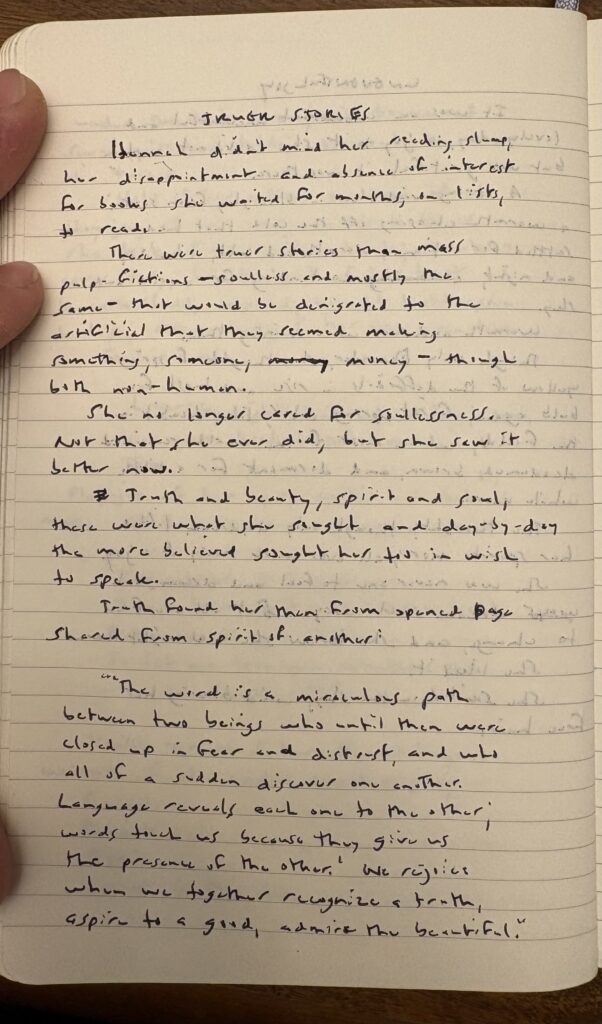 TRUER STORIES
Hannah didn't mind her reading slump,
her disappointment and absence of interest
for books she waited for months, on lists,
to read.
There were truer stories than mass
pulp-fictions – soulless and mostly the
same – that would be denigrated to the
artificial that they seemed making
something, someone, money money – though
both non-human.
She no longer cared for soullessness.
Not that she ever did, but she saw it
better now.
Truth and beauty, spirit and soul,
these were what she sought and day-by-day
the more believed sought her too in wish
to speak.
Truth found her then from opened page
shared from spirit of another:
"'The word is a miraculous path
between two beings who until then were
closed up in fear and distrust, and who
all of a sudden discover one another.
Language reveals each one to the other;
words touch us because they give us
the presence of the other.' We rejoice
when we together recognize a truth,
aspire to a good, admire the beautiful."